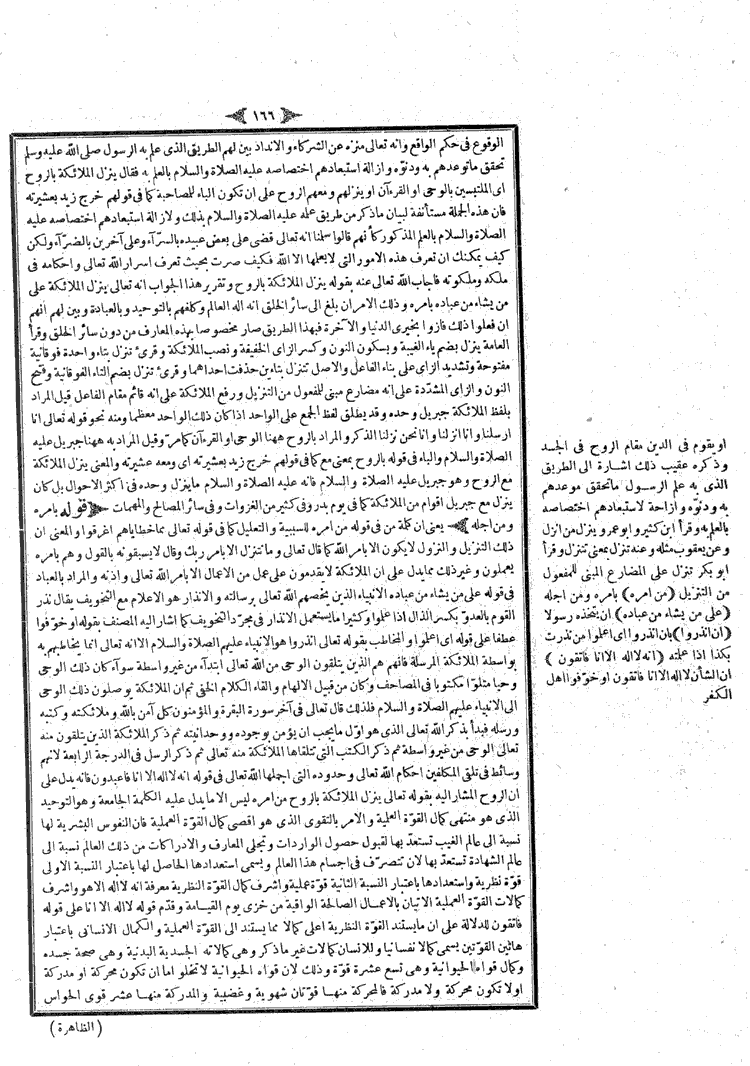 ١٦٦
الوقوع فى حكم الواقع وانه تعالى منزه عن الشركاء والانداد بين لهم الطريق الذى علم به الرسول صلى الله عليه وسلم
تحقق ماتوعدهم به ودنوّه وازالة استبعادهم اختصاصه عليه الصلاة والسلام بالعلم به فقال ينزل الملائكة بالروح
اى الملتبسين بالوحى او القرءآن او ينزلهم ومعهم الروح على ان تكون الباء للمصاحبة كما فى قولهم خرج زيد بعشيرته
فان هذه الجملة مستأنفة لبيان ماذكر من طريق علمه عليه الصلاة والسلام بذلك ولازالة استبعادهم اختصاصه عليه
الصلاة والسلام بالعلم المذكور كأنهم قالوا سلنا انه تعالى قضى على بعض عبيده بالسرآء وعلى آخرين بالضرآء ولكن
كيف يمكنك ان تعرف هذه الامور التى لايعلمها الا الله فكيف صرت بحيث تعرف اسرار الله تعالى واحكامه فى
ملكه وملكوته فاجاب الله تعالى عنه بقوله ينزل الملائكة بالروح وتقرير هذا الجواب انه تعالى ينزل الملائكة على
من يشاء من عباده بامره وذلك الامر ان بلغ الى سائر الخلق انه اله العالم وكلفهم بالتوحيد وبالعبادة وبين لهم انهم
ان فعلوا ذلك فازوا بخيرى الدنيا والآخرة فبهذا الطريق صار مخصوصا بهذه المعارف من دون سائر الخلق وقرأ
العامة ينزل بضم ياء الغيبة وبسكون النون وكسر الزاى الخفيفة ونصب الملائكة وقرئ تنزل بتاء واحدة فوقانية
مفتوحة وتشديد الزاى على بناء الفاعل والاصل تتنزل بتاءين حذفت احداهما وقرئ تنزل بضم التاء الفوقانية وفتح
النون والزاى المشدّدة على انه مضارع مبنى للمفعول من التنزيل ورفع الملائكة على انه قائم مقام الفاعل قيل المراد
بلفظ الملائكة جبريل وحده وقد يطلق لفظ الجمع على الواحد اذا كان ذلك الواحد معظما ومنه نحو قوله تعالى انا
ارسلنا وانا انزلنا وانا نحن نزلنا الذكر والمراد بالروح ههنا الوحى او القرءآن كمامر وقيل المراد به ههنا جبريل عليه
الصلاة والسلام والباء فى قوله بالروح بمعنى مع كما فى قولهم خرج زيد بعشيرته اى ومعه عشيرته والمعنى ينزل الملائكة
مع الروح وهو جبريل عليه الصلاة والسلام فانه عليه الصلاة والسلام ماينزل وحده فى اكثر الاحوال بل كان
ينزل مع جبريل اقوام من الملائكة كما فى يوم بدر وفى كثير من الغزوات وفى سائر المصالح والمهمات ﴿ قوله بامره
ومن اجله ﴾ يعنى ان كلمة من فى قوله من امره للسببية والتعليل كما فى قوله تعالى مما خطاياهم اغرقوا والمعنى ان
ذلك التنزيل والنزول لايكون الا بامر الله كما قال تعالى وما تتنزل الا بامر ربك وقال لايسبقونه بالقول وهم بامره
يعملون وغير ذلك مما يدل على ان الملائكة لايقدمون على عمل من الاعمال الا بامر الله تعالى واذنه والمراد بالعباد
فى قوله على من يشاء من عباده الانبياء الذين يخصهم الله تعالى برسالته والانذار هو الاعلام مع التخويف يقال نذر
القوم بالعدوّ بكسر الذال اذا علموا وكثيرا مايستعمل الانذار فى مجرّد التخويف كما اشار اليه المصنف بقوله او خوّفوا
عطفا على قوله اى اعلموا والمخاطب بقوله تعالى انذروا هو الانبياء عليهم الصلاة والسلام الا انه تعالى انما يخاطبهم به
بواسطة الملائكة المرسلة فانهم هم الذين يتلقون الوحى من الله تعالى ابتدآء من غير واسطة سوآء كان ذلك الوحى
وحيا متلوّا مكتوبا فى المصاحف وكان من قبيل الالهام والقاء الكلام الخفى ثم ان الملائكة يوصلون ذلك الوحى
الى الانبياء عليهم الصلاة والسلام فلذلك قال تعالى فى آخر سورة البقرة والمؤمنون كل آمن بالله وملائكته وكتبه
ورسله فبدأ بذكر الله تعالى الذى هو اوّل مايجب ان يؤمن بوجوده ووحدانيته ثم ذكر الملائكة الذين يتلقون منه
تعالى الوحى من غير واسطة ثم ذكر الكتب التى تتلقاها الملائكة منه تعالى ثم ذكر الرسل فى الدرجة الرابعة لانهم
وسائط فى تلقى المكلفين احكام الله تعالى وحدوده التى اجملها الله تعالى فى قوله انه لااله الا انا فاعبدون فانه يدل على
ان الروح المشار اليه بقوله تعالى ينزل الملائكة بالروح من امره ليس الا مايدل عليه الكلمة الجامعة وهو التوحيد
الذى هو منتهى كمال القوّة العلمية والامر بالتقوى الذى هو اقصى كمال القوّة العملية فان النفوس البشرية لها
نسبة الى عالم الغيب تستعدّ بها لقبول حصول الواردات وتجلى المعارف والادراكات من ذلك العالم نسبة الى
عالم الشهادة تستعدّ بها لان تتصرّف فى اجسام هذا العالم ويسمى استعدادها الحاصل لها باعتبار النسبة الاولى
قوّة نظرية واستعدادها باعتبار النسبة الثانية قوّة عملية واشرف كمال القوّة النظرية معرفة انه لااله الا هو واشرف
كمالات القوّة العملية الاتيان بالاعمال الصالحة الواقية من خزى يوم القيامة وقدّم قوله لااله الا انا على قوله
فاتقون للدلالة على ان مايستند القوّة النظرية اعلى كمالا مما يستند الى القوة العملية والكمال الانسانى باعتبار
هاتين القوّتين يسمى كمالا نفسانيا وللانسان كمالات غير ماذكر وهى كمالاته الجسدية البدنية وهى صحة جسده
وكمال قواه الحيوانية وهى تسع عشرة قوّة وذلك لان قواه الحيوانية لاتخلو اما ان تكون محركة او مدركة
اولا تكون محركة ولا مدركة فالمحركة منها قوّتان شهوية وغضبية والمدركة منها عشر قوى الحواس
(الظاهرة)
او يقوم فى الدين مقام الروح فى الجسد
وذكره عقيب ذلك اشارة الى الطريق
الذى به علم الرسول ماتحقق موعدهم
به ودنوّه وازاحة لاستبعادهم اختصاصه
بالعلم به وقرأ ابن كثير وابو عمرو ينزل من انزل
وعن يعقوب مثله وعنه تنزل بمعنى تتنزل وقرأ
ابو بكر تنزل على المضارع المبنى للمفعول
من التنزيل (من امره) بامره ومن اجله
(على من يشاء من عباده) ان يتخذه رسولا
(ان انذروا) بان انذروا اى اعلموا من نذرت
بكذا اذا علمته (انه لااله الا انا فاتقون)
ان الشأن لااله الا انا فاتقون او خوّفوا اهل
الكفر